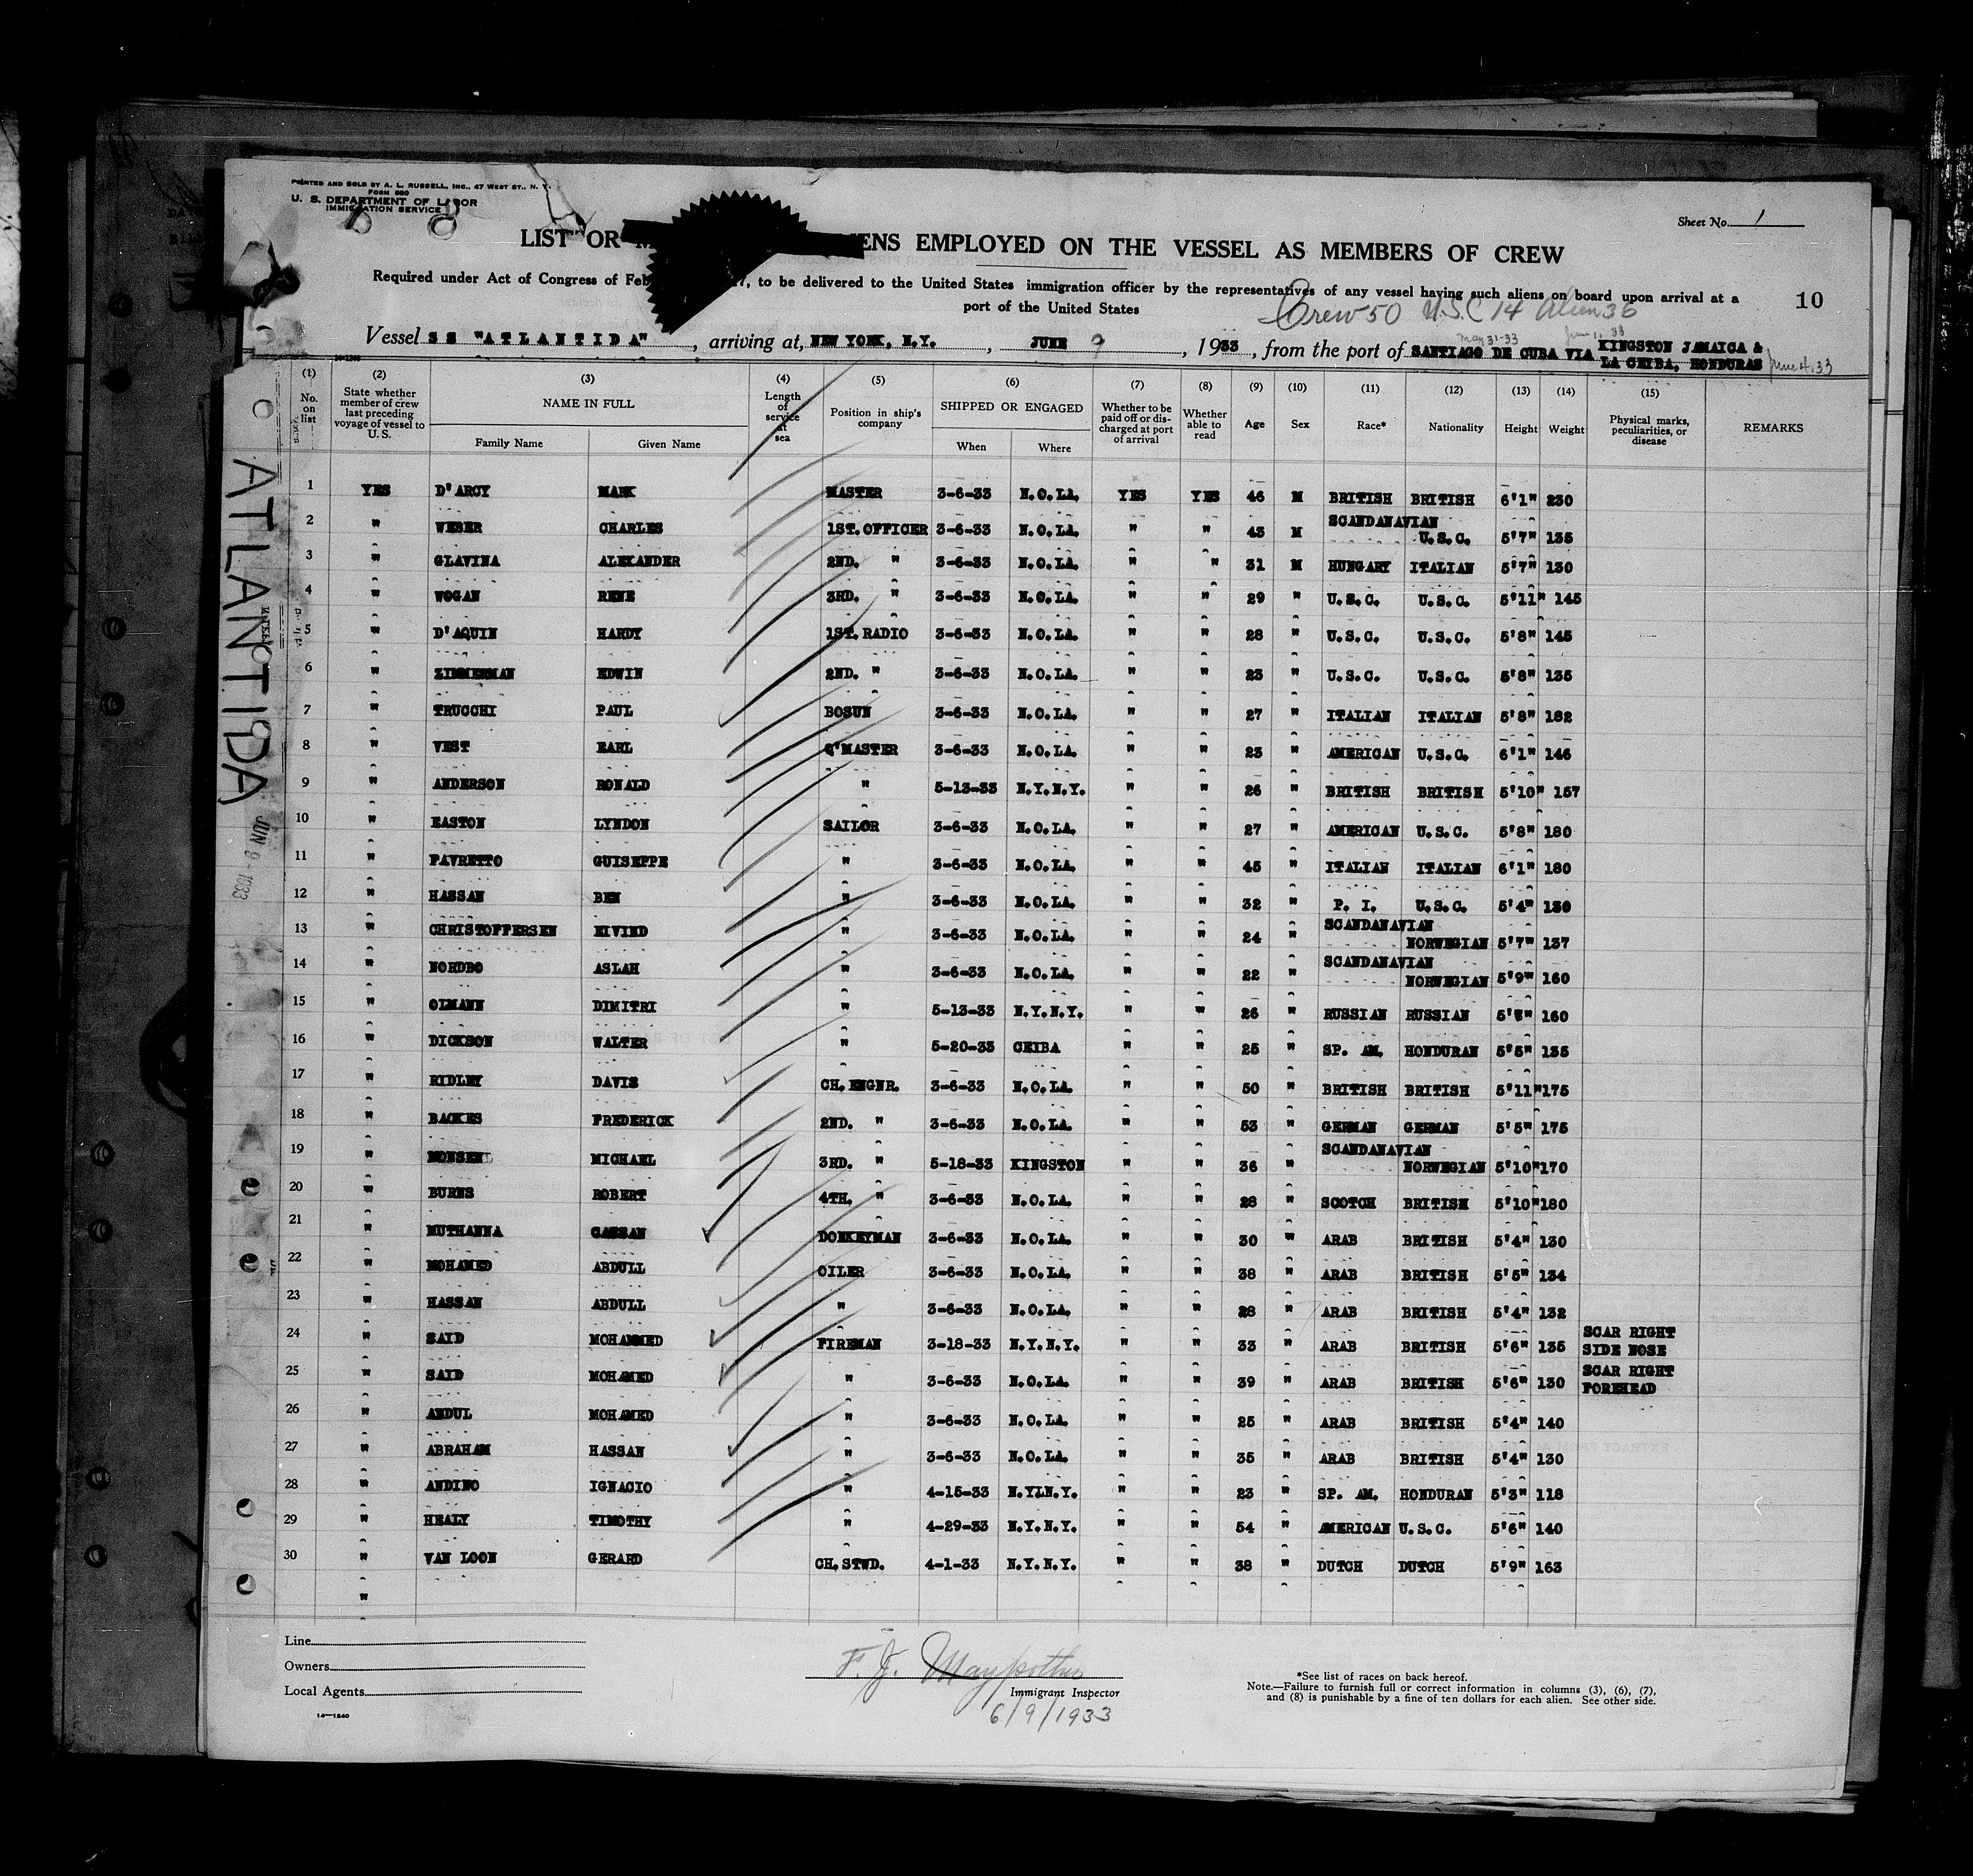 PRINTED AND SOLD BY A. L. RUSSELL, INC., 47 WEST ST., N. Y.
FORM 680
U. S. DEPARTMENT OF LABOR
IMMIGRATION SERVICE
Sheet No. 1
LIST OR ENS EMPLOYED ON THE VESSEL AS MEMBERS OF CREW
Required under Act of Congress of Feb 17, to be delivered to the United States immigration officer by the representatives of any vessel having such aliens on board upon arrival at a
port of the United States
10
Crew 50 U.S.C 14 Alien 36
May 31-33
Vessel SS "ATLANTIDA", arriving at, NEW YORK, N.Y., JUNE 9, 1933, from the port of SANTIAGO DE CUBA VIA KINGSTON JAMAICA &
LA CEIBA, HONDURAS June 4.33
(1) (2) (3) (4) (5) (6) (7) (8) (9) (10) (11) (12) (13) (14) (15)
No. on list State whether member of crew last preceding voyage of vessel to U. S. NAME IN FULL Family Name Given Name Length of service at sea Position in ship's company SHIPPED OR ENGAGED When Where Whether to be paid off or discharged at port of arrival Whether able to read Age Sex Race* Nationality Height Weight Physical marks, peculiarities, or disease REMARKS
1 YES D'ARCY MARK MASTER 3-6-33 N.O.LA. YES YES 46 M BRITISH BRITISH 6'1" 230
2 " WEBER CHARLES 1ST. OFFICER 3-6-33 N.O.LA. " " 43 M SCANDANAVIAN U.S.C. 5'7" 135
3 " GLAVINA ALEXANDER 2ND. " 3-6-33 N.O.LA. " " 31 M HUNGARY ITALIAN 5'7" 130
4 " WOGAN RENE 3RD. " 3-6-33 N.O.LA. " " 29 " U.S.C. U.S.C. 5'11" 145
5 " D'AQUIN HARDY 1ST. RADIO 3-6-33 N.O.LA. " " 28 " U.S.C. U.S.C. 5'8" 145
6 " ZIMMERMAN EDWIN 2ND. " 3-6-33 N.O.LA. " " 23 " U.S.C. U.S.C. 5'8" 135
7 " TRUCCHI PAUL BOSUN 3-6-33 N.O.LA. " " 27 " ITALIAN ITALIAN 5'8" 182
8 " VEST EARL Q'MASTER 3-6-33 N.O.LA. " " 23 " AMERICAN U.S.C. 6'1" 146
9 " ANDERSON RONALD " 5-13-33 N.Y.N.Y. " " 26 " BRITISH BRITISH 5'10" 157
10 " EASTON LYNDON SAILOR 3-6-33 N.O.LA. " " 27 " AMERICAN U.S.C. 5'8" 180
11 " FAVRETTO GUISEPPE " 3-6-33 N.O.LA. " " 45 " ITALIAN ITALIAN 6'1" 180
12 " HASSAN BEN " 3-6-33 N.O.LA. " " 32 " P. I. U.S.C. 5'4" 130
13 " CHRISTOFFERSEN EIVIND " 3-6-33 N.O.LA. " " 24 " SCANDANAVIAN NORWEGIAN 5'7" 137
14 " NORDBO ASLAH " 3-6-33 N.O.LA. " " 22 " SCANDANAVIAN NORWEGIAN 5'9" 160
15 " OLMANN DIMITRI " 5-13-33 N.Y.N.Y. " " 26 " RUSSIAN RUSSIAN 160
16 " DICKSON WALTER " 5-20-33 CEIBA " " 25 " SP. AM. HONDURAN 5'5" 135
17 " RIDLEY DAVIS CH. ENGNR. 3-6-33 N.O.LA. " " 50 " BRITISH BRITISH 5'11" 175
18 " BACKES FREDERICK 2ND. " 3-6-33 N.O.LA. " " 53 " GERMAN GERMAN 5'5" 175
19 " MONSEN MICHAEL 3RD. " 5-18-33 KINGSTON " " 36 " SCANDANAVIAN NORWEGIAN 5'10" 170
20 " BURNS ROBERT 4TH. " 3-6-33 N.O.LA. " " 28 " SCOTCH BRITISH 5'10" 180
21 " MUTHANNA GASSAN DONKEYMAN 3-6-33 N.O.LA. " " 30 " ARAB BRITISH 5'4" 130
22 " MOHAMED ABDULL OILER 3-6-33 N.O.LA. " " 38 " ARAB BRITISH 5'5" 134
23 " HASSAN ABDULL " 3-6-33 N.O.LA. " " 28 " ARAB BRITISH 5'4" 132
24 " SAID MOHAMMED FIREMAN 3-18-33 N.Y.N.Y. " " 33 " ARAB BRITISH 5'6" 135 SCAR RIGHT SIDE NOSE
25 " SAID MOHAMED " 3-6-33 N.O.LA. " " 39 " ARAB BRITISH 5'6" 130 SCAR RIGHT FOREHEAD
26 " ABDUL MOHAMED " 3-6-33 N.O.LA. " " 25 " ARAB BRITISH 5'4" 140
27 " ABRAHAM HASSAN " 3-6-33 N.O.LA. " " 35 " ARAB BRITISH 5'4" 130
28 " ANDINO IGNACIO " 4-15-33 N.Y.N.Y. " " 23 " SP. AM. HONDURAN 5'3" 118
29 " HEALY TIMOTHY " 4-29-33 N.Y.N.Y. " " 54 " AMERICAN U.S.C. 5'6" 140
30 " VAN LOON GERARD CH. STWD. 4-1-33 N.Y.N.Y. " " 38 " DUTCH DUTCH 5'9" 163
"
ATLANTIDA
JUN 9 1933
Line
Owners
Local Agents
14-1240
F. J. Maypother
Immigrant Inspector
6/9/1933
*See list of races on back hereof.
Note.—Failure to furnish full or correct information in columns (3), (6), (7),
and (8) is punishable by a fine of ten dollars for each alien. See other side.